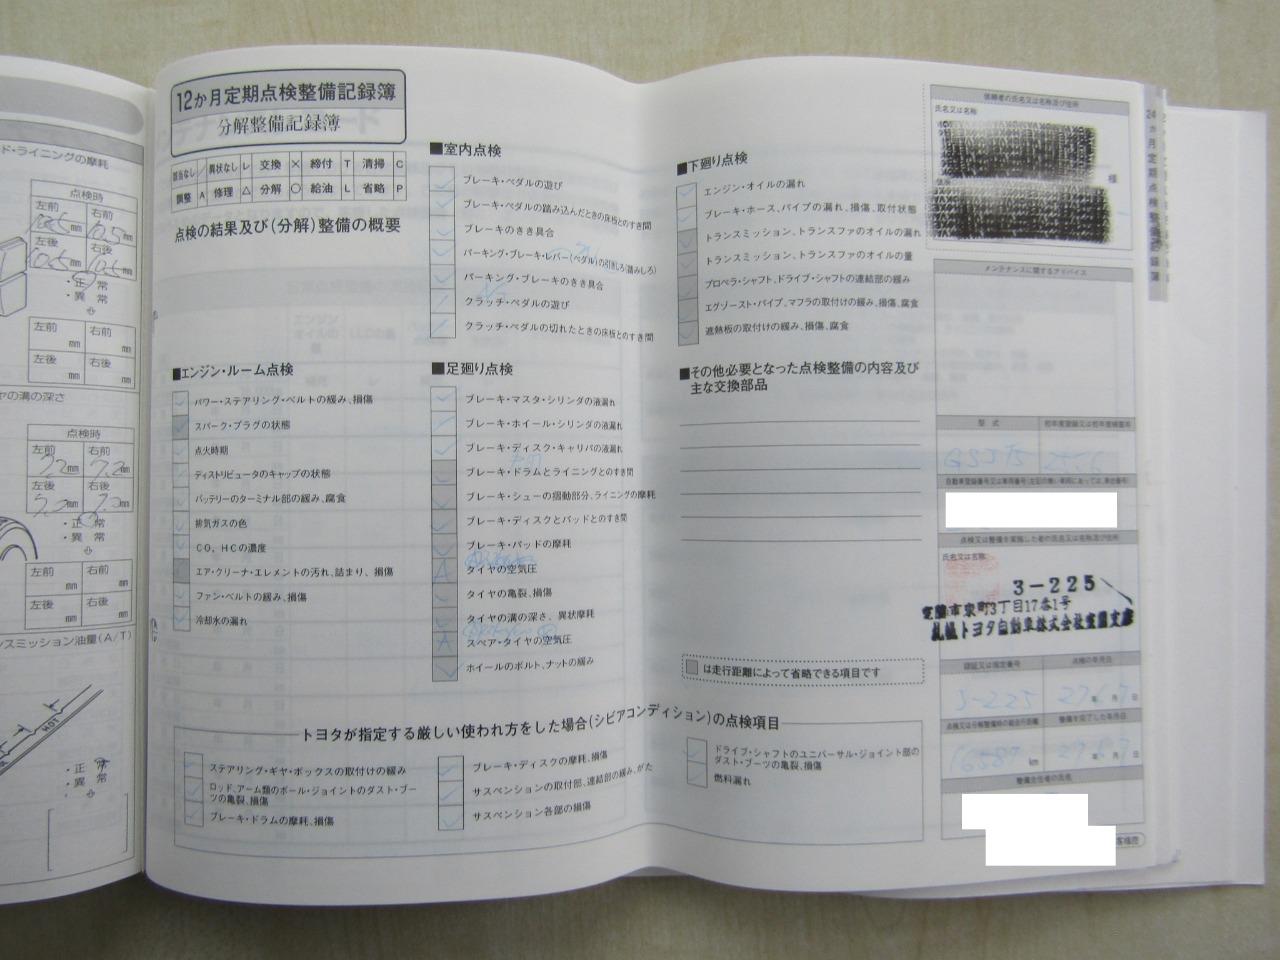 ド・ライニングの摩耗
点検時
左前 右前
10.5mm 10.5mm
左後 右後
10.5mm 10.5mm
・正 常
・異 常
左前 右前
mm mm
左後 右後
mm mm
ヤの溝の深さ
点検時
左前 右前
7.2mm 7.2mm
左後 右後
mm mm
・正 常
・異 常
左前 右前
mm mm
左後 右後
mm mm
ンスミッション油量(A/T)
HOT
・正 常
・異 常
12か月定期点検整備記録簿
分解整備記録簿
該当なし / 異状なし レ 交換 × 締付 T 清掃 C
調整 A 修理 △ 分解 ○ 給油 L 省略 P
点検の結果及び(分解)整備の概要
■エンジン・ルーム点検
パワー・ステアリング・ベルトの緩み、損傷
スパーク・プラグの状態
点火時期
ディストリビュータのキャップの状態
バッテリーのターミナル部の緩み、腐食
排気ガスの色
CO、HCの濃度
エア・クリーナ・エレメントの汚れ、詰まり、損傷
ファン・ベルトの緩み、損傷
冷却水の漏れ
■室内点検
ブレーキ・ペダルの遊び
ブレーキ・ペダルの踏み込んだときの床板とのすき間
ブレーキのきき具合
パーキング・ブレーキ・レバー(ペダル)の引きしろ(踏みしろ)
パーキング・ブレーキのきき具合
クラッチ・ペダルの遊び
クラッチ・ペダルの切れたときの床板とのすき間
■足廻り点検
ブレーキ・マスタ・シリンダの液漏れ
ブレーキ・ホイール・シリンダの液漏れ
ブレーキ・ディスク・キャリパの液漏れ
ブレーキ・ドラムとライニングとのすき間
ブレーキ・シューの摺動部分、ライニングの摩耗
ブレーキ・ディスクとパッドとのすき間
ブレーキ・パッドの摩耗
タイヤの空気圧
タイヤの亀裂、損傷
タイヤの溝の深さ、異状摩耗
スペア・タイヤの空気圧
ホイールのボルト、ナットの緩み
■下廻り点検
エンジン・オイルの漏れ
ブレーキ・ホース、パイプの漏れ、損傷、取付状態
トランスミッション、トランスファのオイルの漏れ
トランスミッション、トランスファのオイルの量
プロペラ・シャフト、ドライブ・シャフトの連結部の緩み
エグゾースト・パイプ、マフラの取付けの緩み、損傷、腐食
遮熱板の取付けの緩み、損傷、腐食
■その他必要となった点検整備の内容及び
主な交換部品
は走行距離によって省略できる項目です
トヨタが指定する厳しい使われ方をした場合(シビアコンディション)の点検項目
ステアリング・ギヤ・ボックスの取付けの緩み
ロッド、アーム類のボール・ジョイントのダスト・ブーツの亀裂、損傷
ブレーキ・ドラムの摩耗、損傷
ブレーキ・ディスクの摩耗、損傷
サスペンションの取付部、連結部の緩み、がた
サスペンション各部の損傷
ドライブ・シャフトのユニバーサル・ジョイント部の
ダスト・ブーツの亀裂、損傷
燃料漏れ
依頼者の氏名又は名称及び住所
氏名又は名称
様
住所
メンテナンスに関するアドバイス
型 式 初年度登録又は初年度検査年
点検又は整備を実施した者の氏名又は名称及び住所
氏名又は名称
3-225
室蘭市東町3丁目17番1号
札幌トヨタ自動車株式会社室蘭支店
認証又は指定番号 点検の年月日
3-225 年 月 日
整備を完了した年月日
16587 km 年 月 日
整備主任者の氏名
24か月定期点検整備記録簿